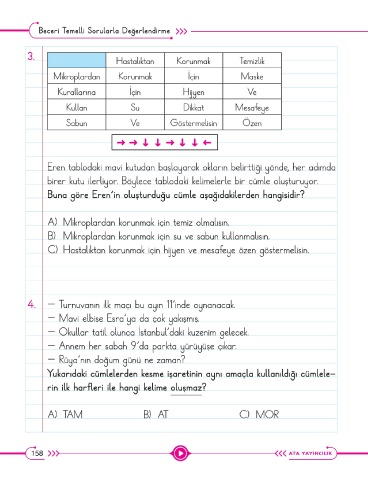 Beceri Temelli Sorularla Değerlendirme
3.
Hastalıktan Korunmak Temizlik
Mikroplardan Korunmak İçin Maske
Kurallarına İçin Hijyen Ve
Kullan Su Dikkat Mesafeye
Sabun Ve Göstermelisin Özen
→ → ↓ ↓ → ↓ ↓ ←
Eren tablodaki mavi kutudan başlayarak okların belirttiği yönde, her adımda
birer kutu ilerliyor. Böylece tablodaki kelimelerle bir cümle oluşturuyor.
Buna göre Eren'in oluşturduğu cümle aşağıdakilerden hangisidir?
A) Mikroplardan korunmak için temiz olmalısın.
B) Mikroplardan korunmak için su ve sabun kullanmalısın.
C) Hastalıktan korunmak için hijyen ve mesafeye özen göstermelisin.
4. – Turnuvanın ilk maçı bu ayın 11'inde oynanacak.
– Mavi elbise Esra'ya da çok yakışmış.
– Okullar tatil olunca İstanbul'daki kuzenim gelecek.
– Annem her sabah 9'da parkta yürüyüşe çıkar.
– Rüya'nın doğum günü ne zaman?
Yukarıdaki cümlelerden kesme işaretinin aynı amaçla kullanıldığı cümlele-
rin ilk harfleri ile hangi kelime oluşmaz?
A) TAM B) AT C) MOR
158
ATA YAYINCILIK